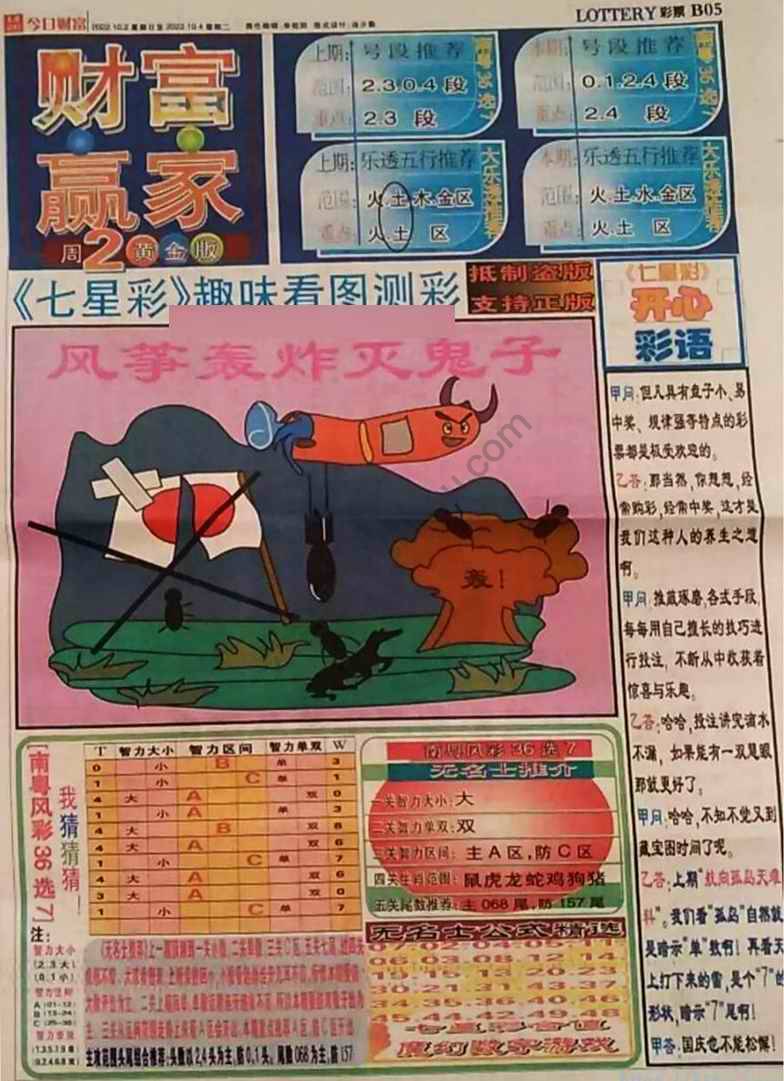 今日财富
2022.10.2 星期日至 2022.10.4 星期二
LOTTERY 彩票 B05
财富
赢家
周2黄金版
上期: 号段推荐
范围: 2.3.0.4 段
重点: 2.3 段
南粤36选7
本期: 号段推荐
范围: 0.1.2.4 段
重点: 2.4 段
南粤36选7
上期: 乐透五行推荐
范围: 火.土.木.金区
重点: 火.土 区
大乐透推荐
本期: 乐透五行推荐
范围: 火.土.水.金区
重点: 火.土 区
大乐透推荐
《七星彩》趣味看图测彩
抵制盗版
支持正版
风筝轰炸灭鬼子
轰!
《七星彩》
开心
彩语
甲问:但凡具有盘子小、易
中奖、规律强等特点的彩
票都是极受欢迎的。
乙答:那当然,你想想,经
常购彩,经常中奖,这才是
我们这种人的养生之道
啊。
甲问:推敲琢磨,各式手段,
每每用自己擅长的技巧进
行投注,不断从中收获着
惊喜与乐趣。
乙答:哈哈,投注讲究滴水
不漏,如果能有一双慧眼
那就更好了。
甲问:哈哈,不知不觉又到
藏宝图时间了呢。
乙答:上期"航向孤岛天难
料"。我们看"孤岛"自然就
是暗示"单"数啊!再看天
上打下来的雷,是个"7"的
形状,暗示"7"尾啊!
甲答:国庆也不能松懈!
南粤风彩36选7
我猜猜猜!
T 智力大小 智力区间 智力单双 W
0 小 B 单 3
1 小 C 单 1
4 大 A 双 0
1 小 A 单 3
4 大 B 双 8
4 大 A 双 6
1 小 C 单 7
4 大 A 双 6
3 大 A 双 0
1 小 C 单 7
注:
智力大小
(2.3.大)
(0.1.小)
智力区间
A(01-12)
B(13-24)
C(25-36)
智力单双
(1.3.5.7.9.单)
(0.2.4.6.8.双)
主攻范围头尾组合推荐:头数以2,4头为主,防0,1头。尾数068为主,防157
南粤风彩36选7
无名士推介
一关智力大小:大
二关智力单双:双
三关智力区间:主A区,防C区
四关生肖范围:鼠虎龙蛇鸡狗猪
五关尾数推荐:主068尾,防157尾
无名士公式精选
01 02 02 04 05 11
06 03 08 12 14
13 20 23
44 45 42 49 48
魔幻数字游戏